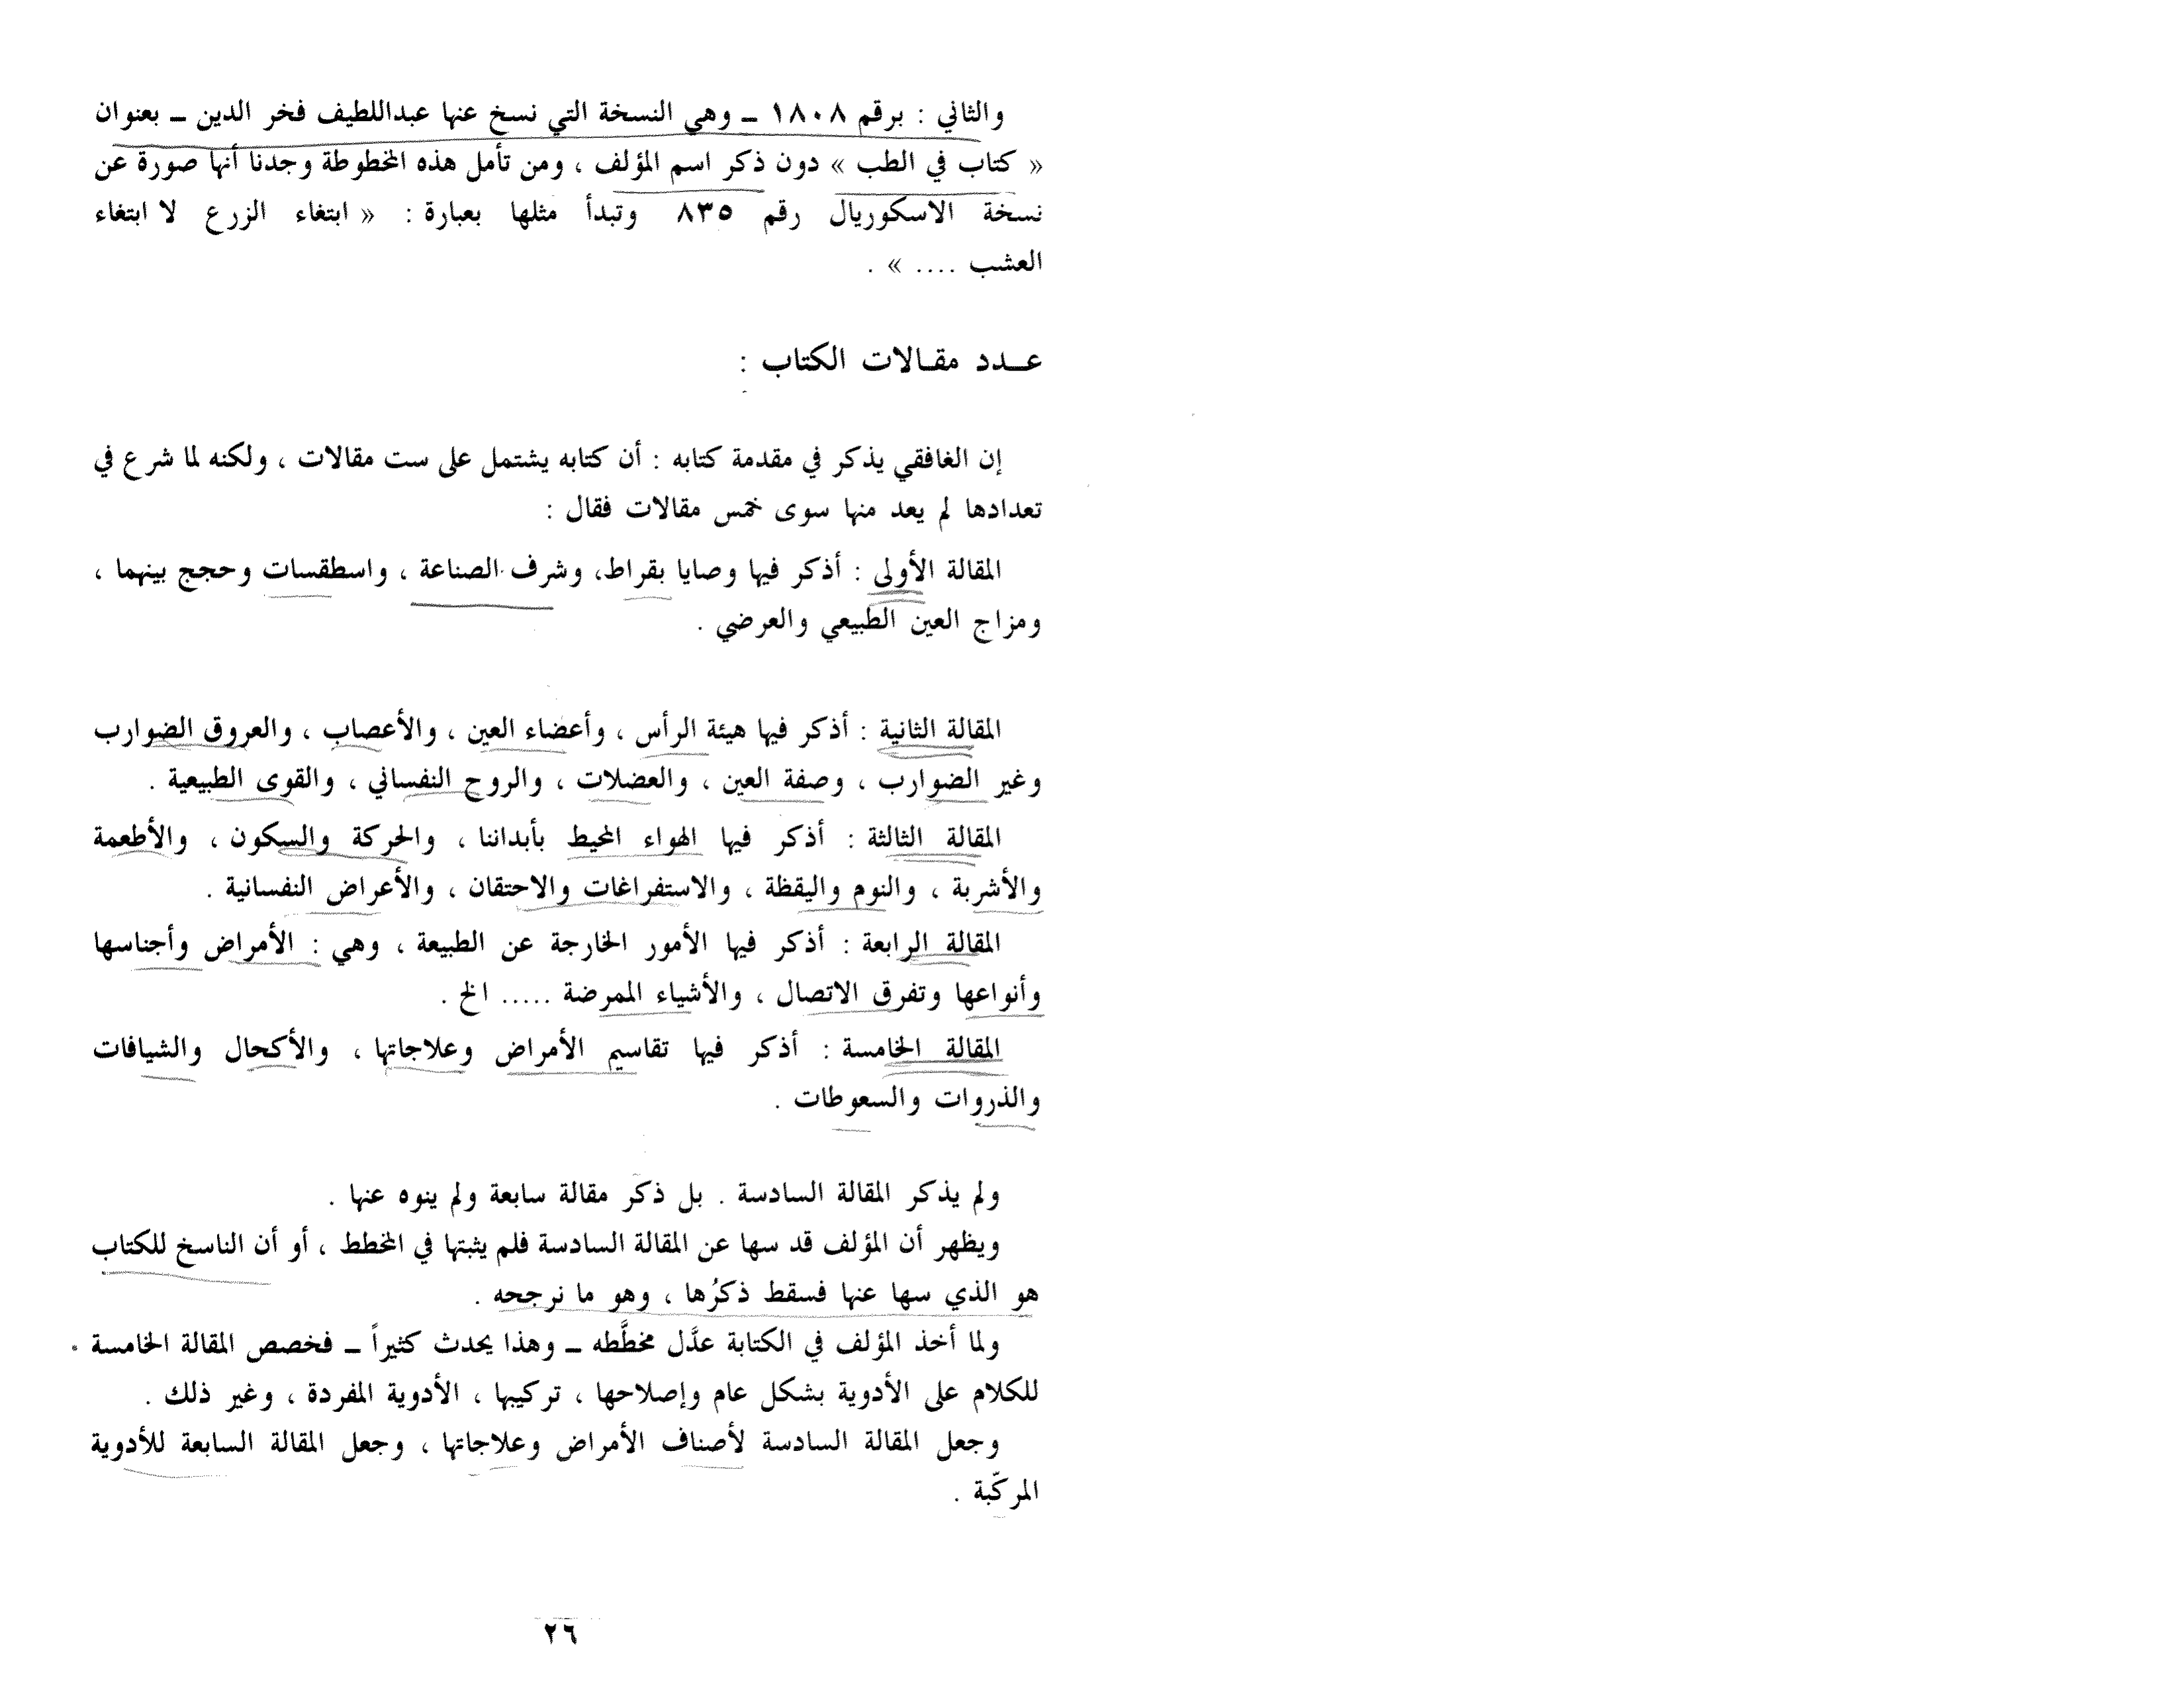 والثاني : برقم ١٨٠٨ ــ وهي النسخة التي نسخ عنها عبداللطيف فخر الدين ــ بعنوان
« كتاب في الطب » دون ذكر اسم المؤلف ، ومن تأمل هذه المخطوطة وجدنا أنها صورة عن
نسخة الاسكوريال رقم ٨٣٥ وتبدأ مثلها بعبارة : « ابتغاء الزرع لا ابتغاء
العشب .... » .
عـــدد مقـالات الكتاب :
إن الغافقي يذكر في مقدمة كتابه : أن كتابه يشتمل على ست مقالات ، ولكنه لما شرع في
تعدادها لم يعد منها سوى خمس مقالات فقال :
المقالة الأولى : أذكر فيها وصايا بقراط، وشرف الصناعة ، واسطقسات وحجج بينهما ،
ومزاج العين الطبيعي والعرضي .
المقالة الثانية : أذكر فيها هيئة الرأس ، وأعضاء العين ، والأعصاب ، والعروق الضوارب
وغير الضوارب ، وصفة العين ، والعضلات ، والروح النفساني ، والقوى الطبيعية .
المقالة الثالثة : أذكر فيها الهواء المحيط بأبداننا ، والحركة والسكون ، والأطعمة
والأشربة ، والنوم واليقظة ، والاستفراغات والاحتقان ، والأعراض النفسانية .
المقالة الرابعة : أذكر فيها الأمور الخارجة عن الطبيعة ، وهي : الأمراض وأجناسها
وأنواعها وتفرق الاتصال ، والأشياء الممرضة ..... الخ .
المقالة الخامسة : أذكر فيها تقاسيم الأمراض وعلاجاتها ، والأكحال والشيافات
والذروات والسعوطات .
ولم يذكر المقالة السادسة . بل ذكر مقالة سابعة ولم ينوه عنها .
ويظهر أن المؤلف قد سها عن المقالة السادسة فلم يثبتها في المخطط ، أو أن الناسخ للكتاب
هو الذي سها عنها فسقط ذكرُها ، وهو ما نرجحه .
ولما أخذ المؤلف في الكتابة عدَّل مخطَّطه ــ وهذا يحدث كثيراً ــ فخصص المقالة الخامسة
للكلام على الأدوية بشكل عام وإصلاحها ، تركيبها ، الأدوية المفردة ، وغير ذلك .
وجعل المقالة السادسة لأصناف الأمراض وعلاجاتها ، وجعل المقالة السابعة للأدوية
المركّبة .
٢٦